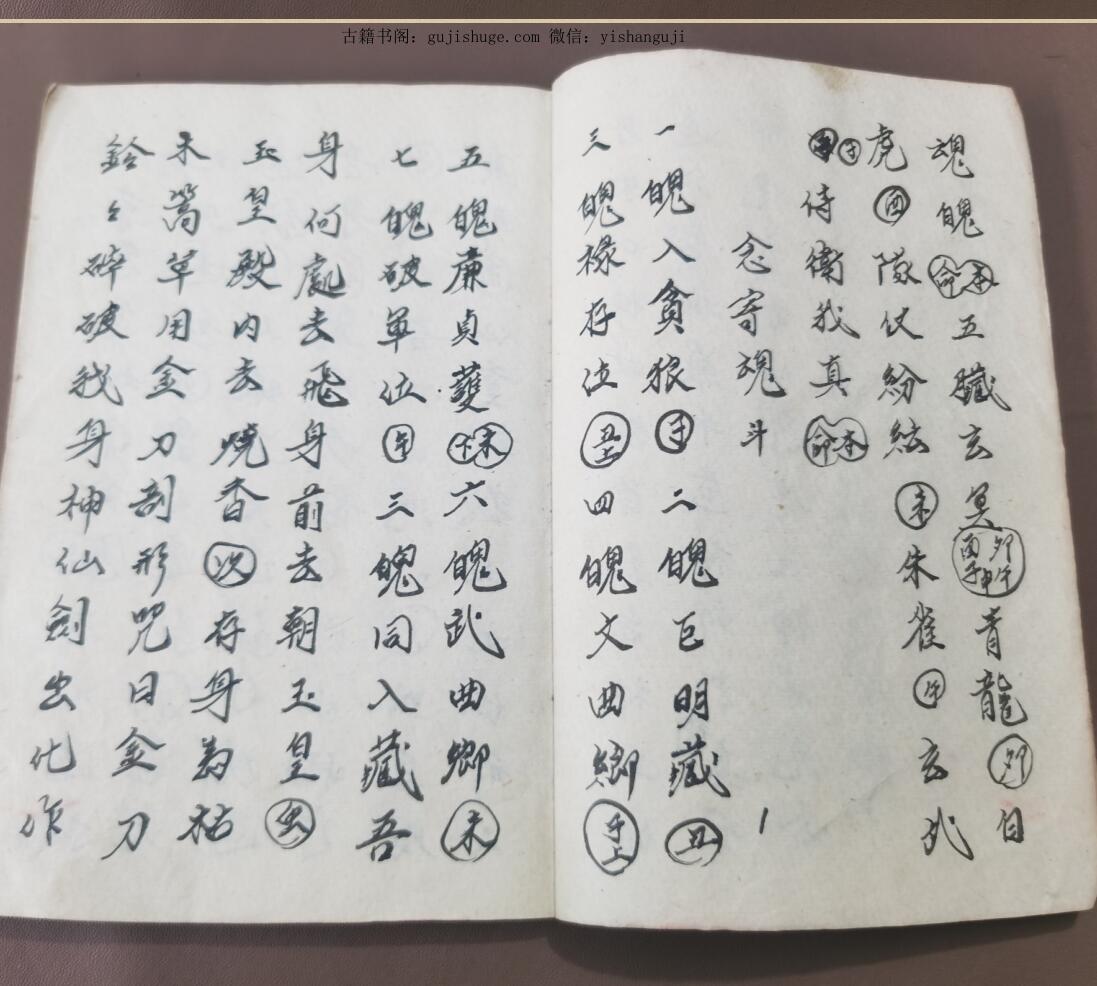 古籍书阁：gujishuge.com 微信：yishanguji
魂魄本命五臟玄冥卯午酉子申青龍卯白
虎酉隊仗紛紜未朱雀午玄武
子侍衛我真本命
念寄魂斗
一魄入貪狼子二魄巨明藏丑
三魄祿存位丑上四魄文曲鄉子上
五魄廉貞未下六魄武曲鄉未
七魄破軍位午三魄同入藏吾
身何處去飛身前去朝玉皇出
玉皇殿內去燒香次存身為枯
木蒿草用金刀剖形咒曰金刀
鈴々碎破我身神仙劍出化作